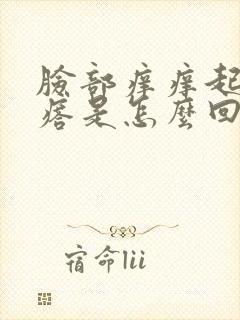 臉部痒痒起
痞是怎麼回
宿命lii